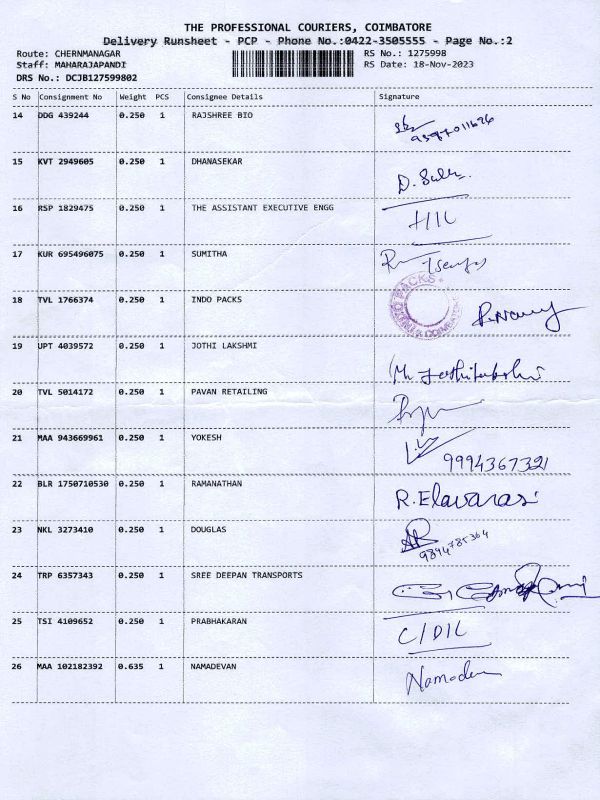 THE PROFESSIONAL COURIERS, COIMBATORE
Delivery Runsheet - PCP - Phone No.:0422-3505555 - Page No.:2
Route: CHERNMANAGAR RS No.: 1275998
Staff: MAHARAJAPANDI RS Date: 18-Nov-2023
DRS No.: DCJB127599802
S No Consignment No Weight PCS Consignee Details Signature
14 DDG 439244 0.250 1 RAJSHREE BIO
15 KVT 2949605 0.250 1 DHANASEKAR
16 RSP 1829475 0.250 1 THE ASSISTANT EXECUTIVE ENGG
17 KUR 695496075 0.250 1 SUMITHA
18 TVL 1766374 0.250 1 INDO PACKS
19 UPT 4039572 0.250 1 JOTHI LAKSHMI
20 TVL 5014172 0.250 1 PAVAN RETAILING
21 MAA 943669961 0.250 1 YOKESH 9994367321
22 BLR 1750710530 0.250 1 RAMANATHAN R.Elavarasi
23 NKL 3273410 0.250 1 DOUGLAS 9894785364
24 TRP 6357343 0.250 1 SREE DEEPAN TRANSPORTS
25 TSI 4109652 0.250 1 PRABHAKARAN C/DIL
26 MAA 102182392 0.635 1 NAMADEVAN